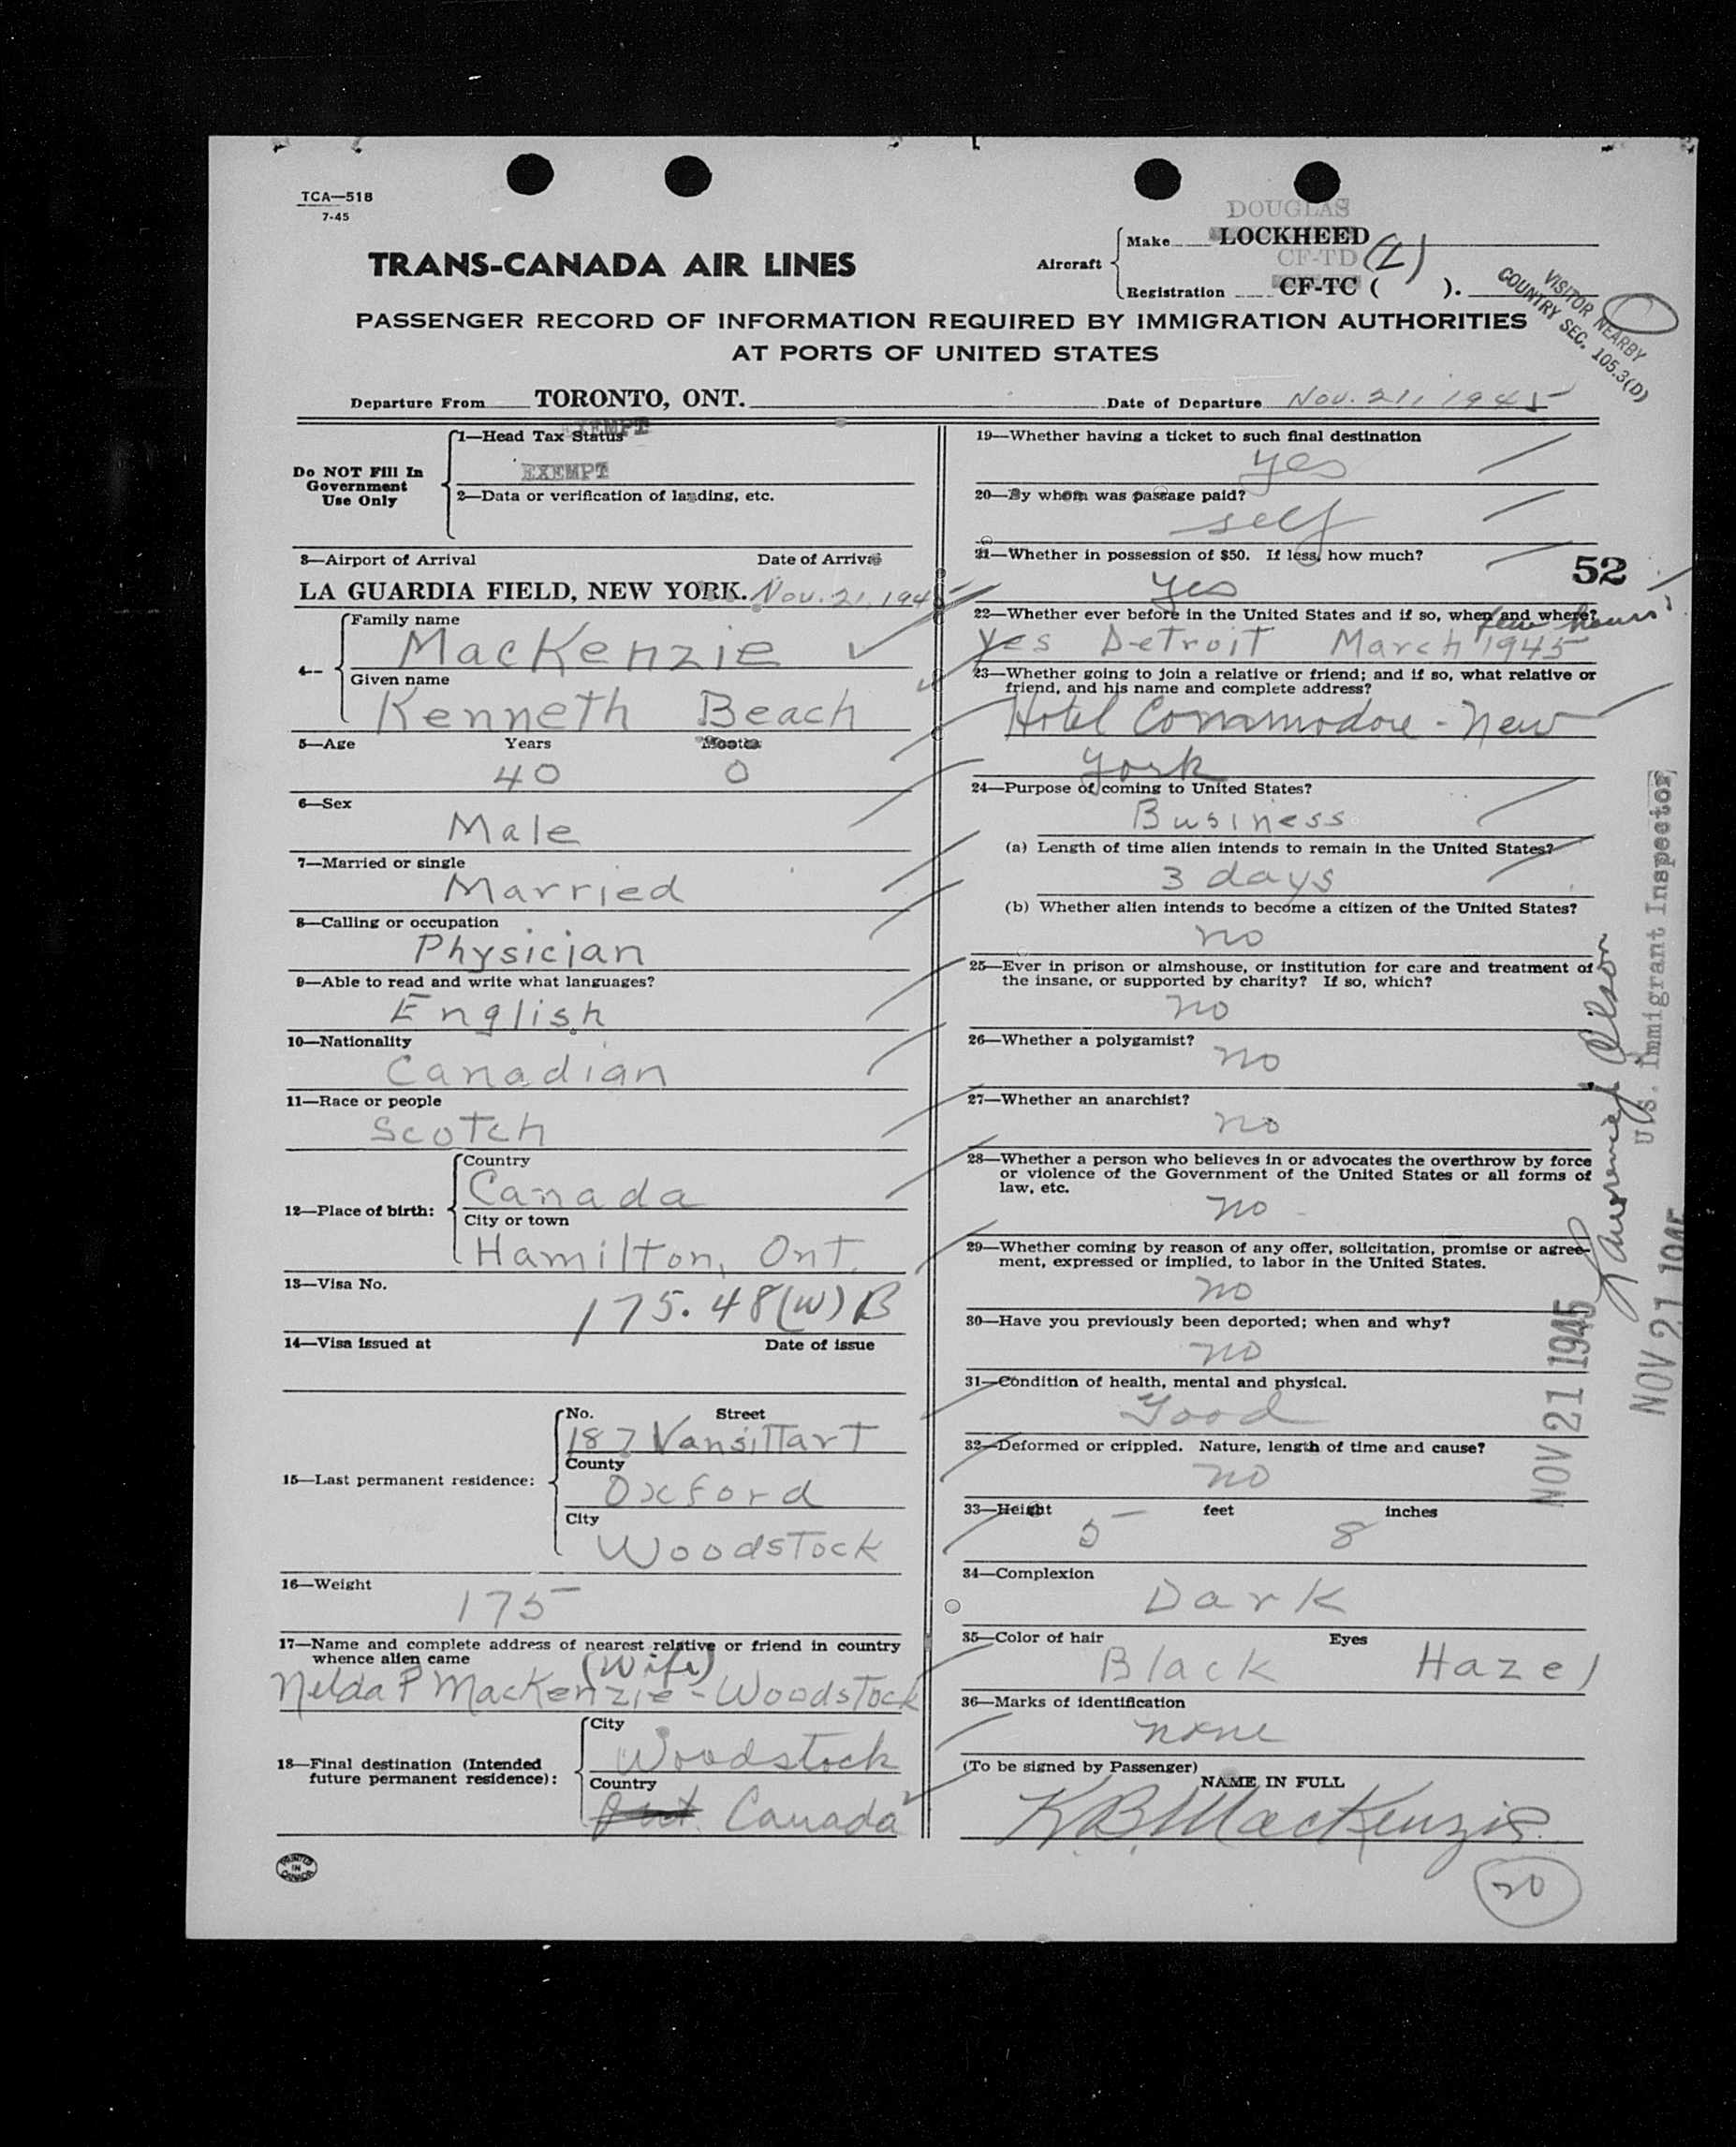 TCA—518
7-45
TRANS-CANADA AIR LINES
DOUGLAS
Aircraft
Make LOCKHEED
CF-TD (L)
Registration CF-TC ( ).
VISITOR NEARBY
COUNTRY SEC. 105.3(D)
PASSENGER RECORD OF INFORMATION REQUIRED BY IMMIGRATION AUTHORITIES
AT PORTS OF UNITED STATES
Departure From TORONTO, ONT. Date of Departure Nov. 21, 1945
Do NOT Fill In
Government
Use Only
EXEMPT
1—Head Tax Status
EXEMPT
2—Data or verification of landing, etc.
3—Airport of Arrival Date of Arrival
LA GUARDIA FIELD, NEW YORK. Nov. 21, 1945
4—
Family name
MacKenzie
Given name
Kenneth Beach
5—Age Years Months
40 0
6—Sex
Male
7—Married or single
Married
8—Calling or occupation
Physician
9—Able to read and write what languages?
English
10—Nationality
Canadian
11—Race or people
Scotch
12—Place of birth:
Country
Canada
City or town
Hamilton, Ont.
13—Visa No.
175.48(W)B
14—Visa issued at Date of issue
15—Last permanent residence:
No. Street
187 Vansittart
County
Oxford
City
Woodstock
16—Weight
175
17—Name and complete address of nearest relative or friend in country
whence alien came
(Wife)
Nelda P MacKenzie - Woodstock
18—Final destination (Intended
future permanent residence):
City
Woodstock
Country
Ont. Canada
PRINTED
IN
CANADA
19—Whether having a ticket to such final destination
yes
20—By whom was passage paid?
self
21—Whether in possession of $50. If less, how much?
52
yes
22—Whether ever before in the United States and if so, when and where?
few hours
yes Detroit March 1945
23—Whether going to join a relative or friend; and if so, what relative or
friend, and his name and complete address?
Hotel Commodore - New
York
24—Purpose of coming to United States?
Business
(a) Length of time alien intends to remain in the United States?
3 days
(b) Whether alien intends to become a citizen of the United States?
no
25—Ever in prison or almshouse, or institution for care and treatment of
the insane, or supported by charity? If so, which?
no
26—Whether a polygamist?
no
27—Whether an anarchist?
no
28—Whether a person who believes in or advocates the overthrow by force
or violence of the Government of the United States or all forms of
law, etc.
no
29—Whether coming by reason of any offer, solicitation, promise or agree-
ment, expressed or implied, to labor in the United States.
no
30—Have you previously been deported; when and why?
no
31—Condition of health, mental and physical.
Good
32—Deformed or crippled. Nature, length of time and cause?
no
33—Height feet inches
5 8
34—Complexion
Dark
35—Color of hair Eyes
Black Hazel
36—Marks of identification
none
(To be signed by Passenger)
NAME IN FULL
K.B. MacKenzie
20
NOV 21 1945
U.S. Immigrant Inspector
NOV 21 1945